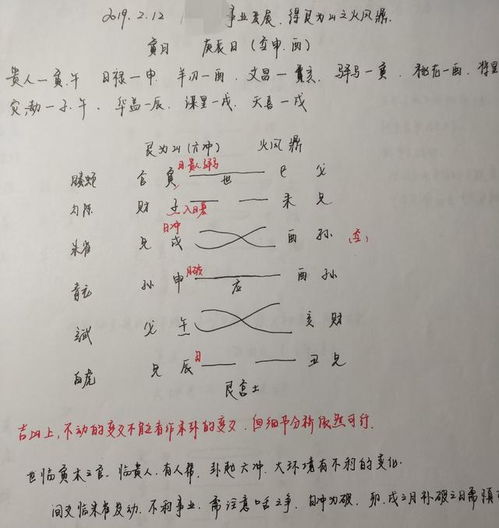 2019.2.12 事业发展，得艮为山之火风鼎.
寅月 庚辰日（空申.酉）
贵人—寅.午 日禄—申 羊刃—酉. 文昌—亥 驿马—寅. 桃花—酉. 将星
灾劫—子.午、华盖—辰. 谋星—戌 天喜—戌
艮为山(六冲) 火风鼎
日贵人驿马
腾蛇 官 寅 世 巳 父
勾陈 财 子 入日墓 未 兄
日冲
朱雀 兄 戌 酉 孙 (空)
青龙 孙 申 月破 应 酉 孙
玄武 父 午 亥 财
白虎 兄 辰 日 丑 兄
艮宫土
, 不动的变爻不能看作本卦的变爻. 但细节分析依然可行.
世临寅木之官. 临贵人. 有人帮. 卦勉六冲. 大环境有不利的变化.
间爻临朱雀发动. 不利事业. 需注意口舌之争. 日冲为破. 卯.戌之月孙破之日需